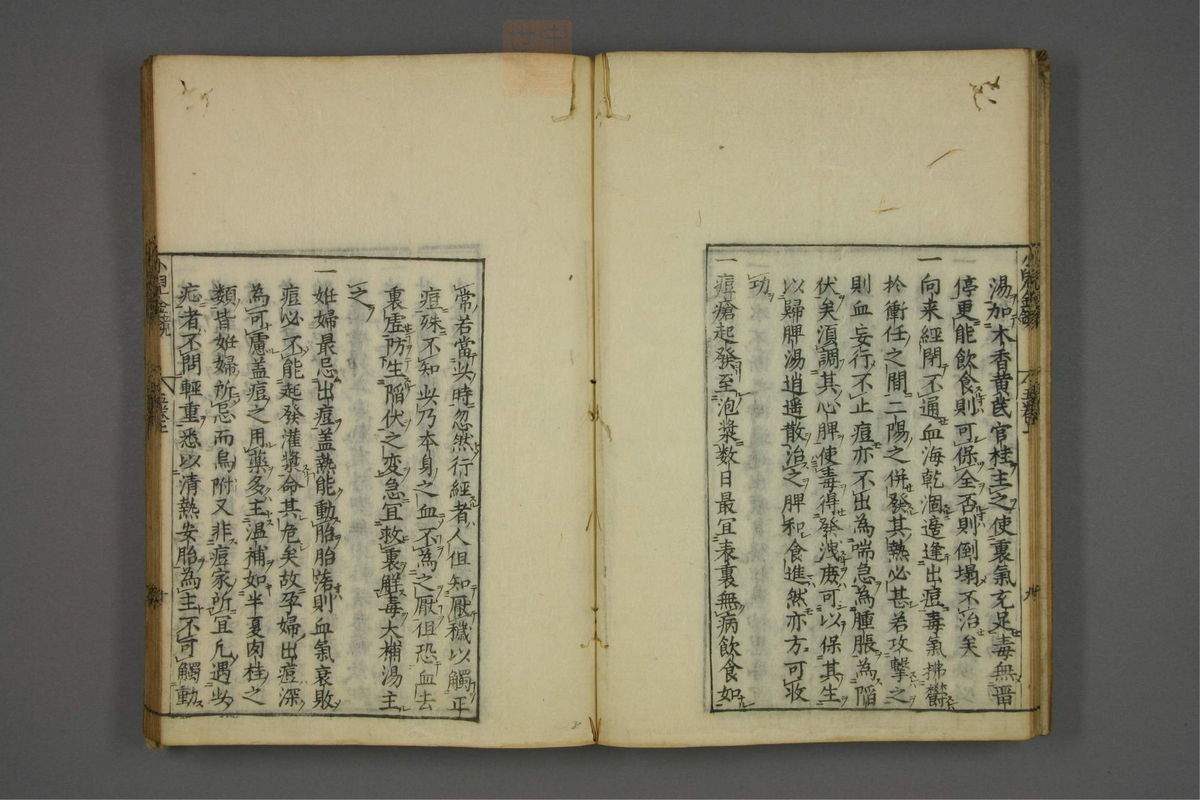 湯加木香黄芪官桂主之使裏氣充足毒無畱
停更能飲食則可保全否則倒塌不治矣
一向来經閉不通血海乾涸邂逢出痘毒氣拂欝
於衝任之間二陽之併發其熱必甚若攻擊之
則血妄行不止痘亦不出為喘急為腫脹為陷
伏矣湏調其心脾使毒得發洩庻可以保其生
以歸脾湯逍遥散治之脾和食進然亦方可收
功
一痘瘡起發至泡漿数日最宜表裏無病飲食如
常若當此時忽然行經者人但知厭穢以觸正
痘殊不知此乃本身之血不為之厭但恐血去
裏虚防生陷伏之変急宜救裏觧毒大補湯主
之
一姙婦最忌出痘盖熱能動胎胎落則血氣衰敗
痘必不能起發灌漿命其危矣故孕婦出痘深
為可慮盖痘之用藥多主温補如半夏肉桂之
類皆姙婦所忌而烏附又非痘家所宜凡遇此
疙者不問輕重悉以清熱安胎為主不可觸動